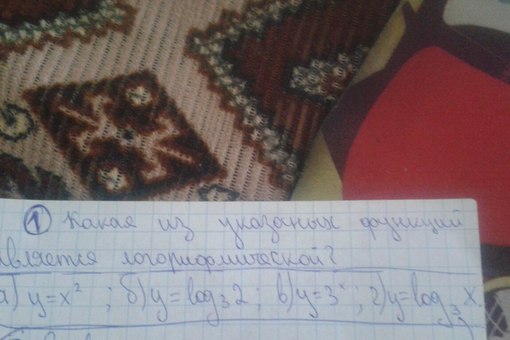 ① Какая из указаных функций
является логорифмической?
а) y=x²; б) y=log₃2; в) y=3ˣ; г) y=log₃x.